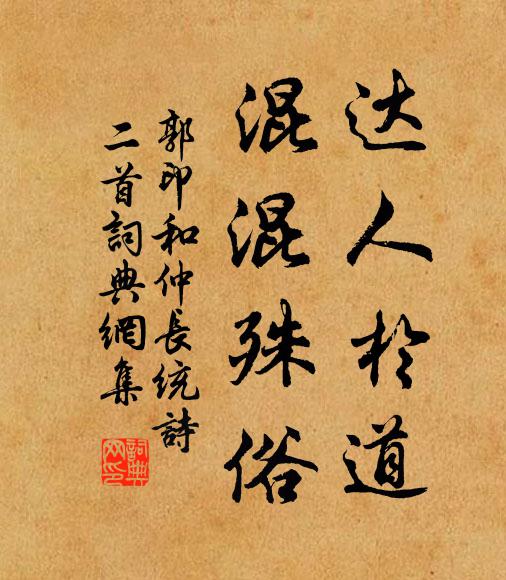 达人於道
混混殊俗
郭印和仲長統詩
二首詞典網集
詞典
网印